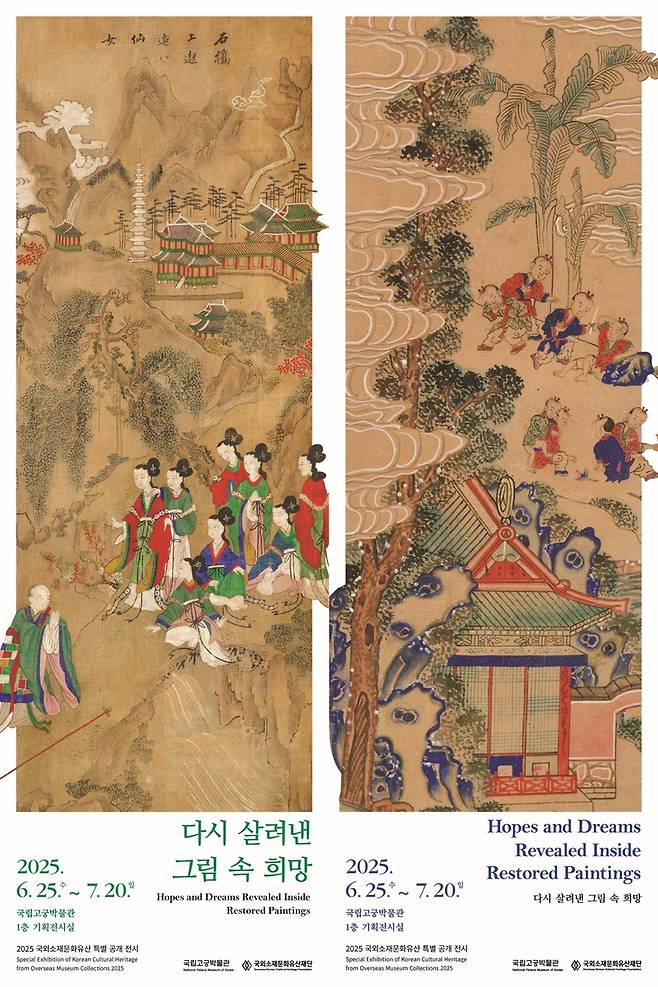 石橋上邂逅八仙女
다시 살려낸
그림 속 희망
Hopes and Dreams Revealed Inside
Restored Paintings
2025.
6. 25.수 ~ 7. 20.일
국립고궁박물관
1층 기획전시실
2025 국외소재문화유산 특별 공개 전시
Special Exhibition of Korean Cultural Heritage
from Overseas Museum Collections 2025
국립고궁박물관
National Palace Museum of Korea
국외소재문화유산재단
Overseas Korean Cultural Heritage Foundation
Hopes and Dreams
Revealed Inside
Restored Paintings
다시 살려낸 그림 속 희망
2025.
6. 25.수 ~ 7. 20.일
국립고궁박물관
1층 기획전시실
2025 국외소재문화유산 특별 공개 전시
Special Exhibition of Korean Cultural Heritage
from Overseas Museum Collections 2025
국립고궁박물관
National Palace Museum of Korea
국외소재문화유산재단
Overseas Korean Cultural Heritage Foundation